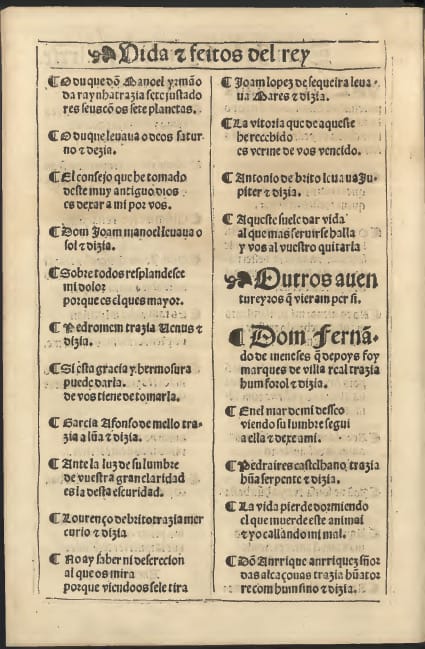 Vida ⁊ feitos del rey
¶ O duque dõ Manoel yrmão
da raynha trazia sete justado
res seus cõ os sete planetas.
¶ O duque leuaua o deos satur
no ⁊ dezia.
¶ El consejo que he tomado
deste muy antiguo dios
es dexar a mi por vos.
¶ Dom Joam manoel leuaua o
sol ⁊ dizia.
¶ Sobre todos resplandesce
mi dolor
porque es el ques mayor.
¶ Pedromem trazia Uenus ⁊
dizia.
¶ Si esta gracia y hermosura
puede darla.
de vos tiene de tomarla.
¶ Garcia Afonso de mello tra-
zia a lũa ⁊ dizia.
¶ Ante la luz de su lumbre
de vuestra gran claridad
es la desta escuridad.
¶ Lourenço de brito trazia mer
curio ⁊ dizia
¶ No ay saber ni descrecion
al que os mira
porque viendoos se le tira
¶ Joam lopez de sequeira leua-
ua Mares ⁊ dizia.
¶ La vitoria que de aqueste
he recebido
es verme de vos vencido.
¶ Antonio de brito leuaua Ju-
piter ⁊ dizia.
¶ Aqueste suele dar vida
al que mas seruirse halla
y vos al vuestro quitarla
Outros auen
tureyros q̃ vieram per si.
¶ Dom Fernã-
do de meneses q̃ depoys foy
marques de villa real trazia
hum forol ⁊ dizia.
¶ En el mar de mi desseo
viendo su lumbre segui
a ella ⁊ dexe a mi.
¶ Pedraires castelhano, trazia
hũa serpente ⁊ dizia.
¶ La vida pierde dormiendo
el que muerde este animal
⁊ yo callando mi mal.
¶ Dõ Anrrique anrriquez sñor
das alcaçouas trazia hũa tor
re com hum sino ⁊ dizia.